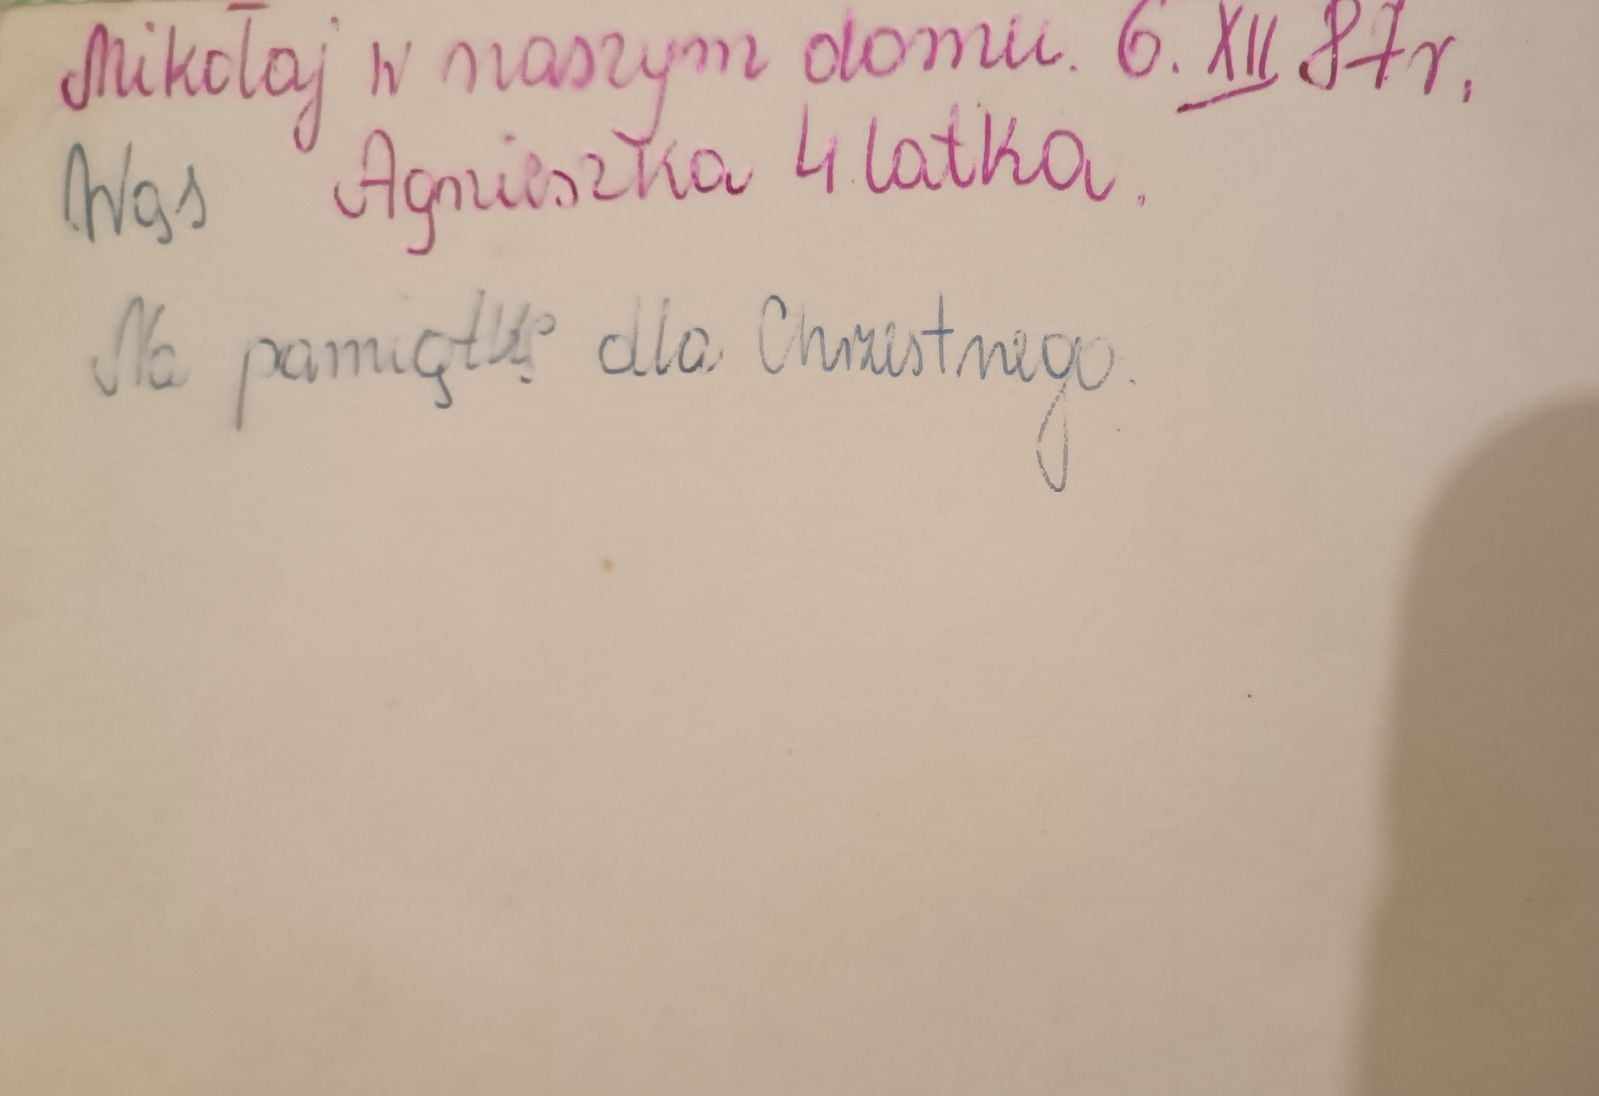 Mikołaj w naszym domu. 6. XII 87r.
Was Agnieszka 4 latka.
Na pamiątkę dla Chrzestnego.